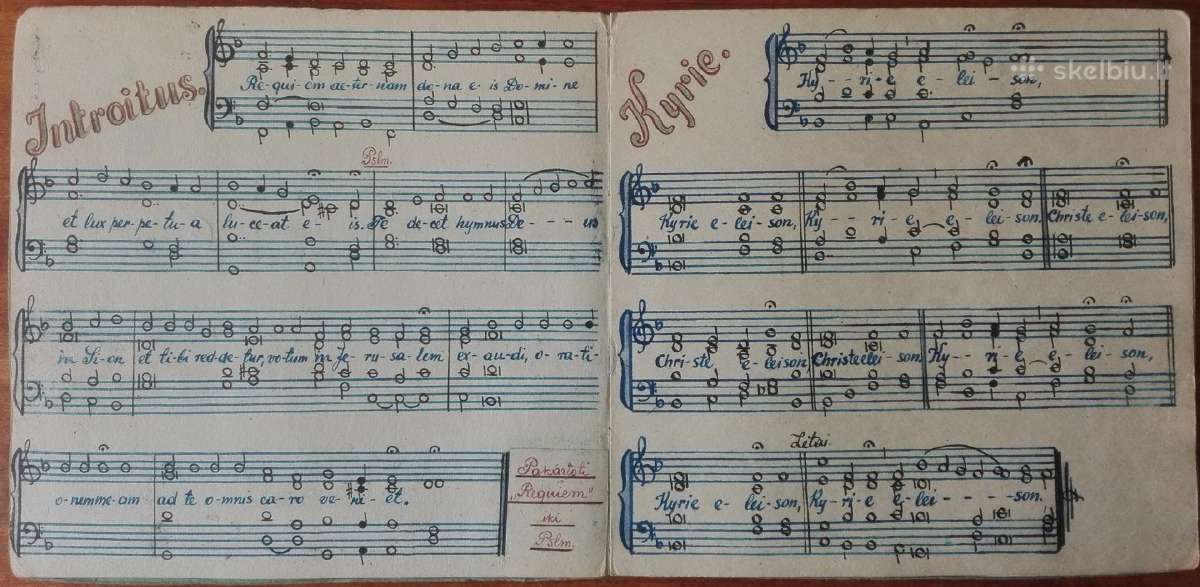 Introitus.
Re-qui-em ae-ter-nam do-na e-is Do-mi-ne
Pslm.
et lux per-pe-tu-a lu-ce-at e-is. Te de-cet hymnus De---us
in Si-on et ti-bi red-de-tur, vo-tum in Je-ru-sa-lem ex-au-di, o-ra-ti-
o-nem me-am ad te o-mnis ca-ro ve-ni-et.
Pakartoti
„Requiem"
iki
Pslm.
Kyrie.
skelbiu.lt
Ky---ri-e e-lei-son,
Kyrie e-lei-son, Ky---ri-e e-lei-son. Christe e-lei-son,
Chri-ste e-leison, Christe elei-son. Ky---ri-e e-lei-son,
Lėtai
Kyrie e-lei-son, Ky-ri-e e-lei----son.